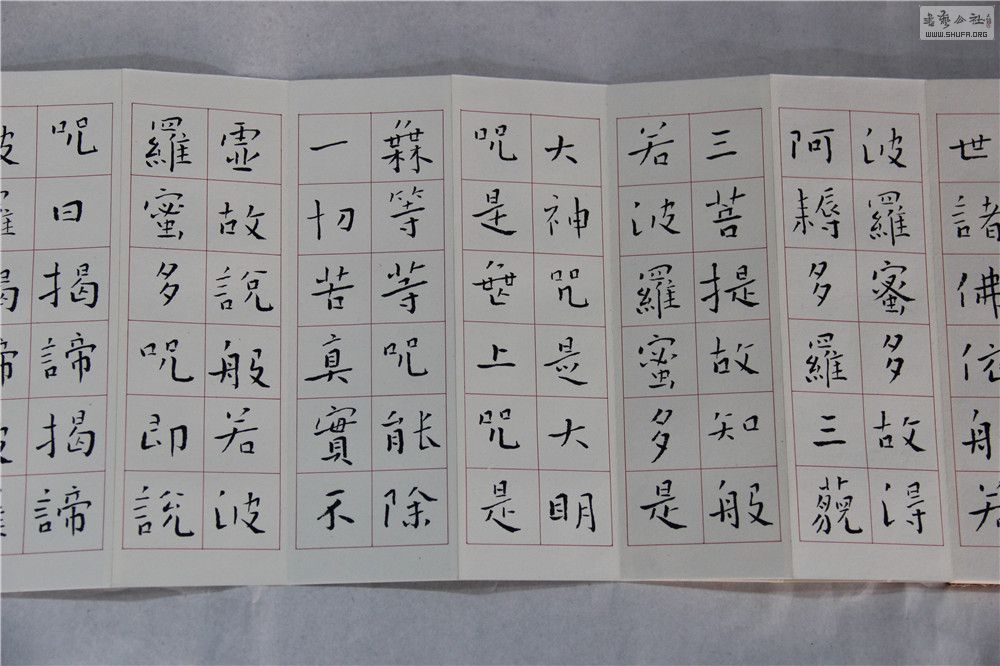 世諸佛依般若
波羅蜜多故得
阿耨多羅三藐
三菩提故知般
若波羅蜜多是
大神呪是大明
呪是無上呪是
無等等呪能除
一切苦真實不
虛故說般若波
羅蜜多呪即說
呪曰揭諦揭諦
書藝公社
WWW.SHUFA.ORG